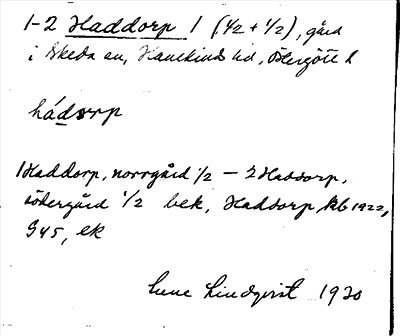 1-2 Haddorp 1 (1/2 + 1/2), gård
i Skeda sn, Hanekinds hd, Östergötl l
hádɒrp
1 Haddorp, norrgård 1/2 – 2 Haddorp,
södergård 1/2 bek, Haddorp, kb 1922,
G45, ek
Sune Lindqvist 1920